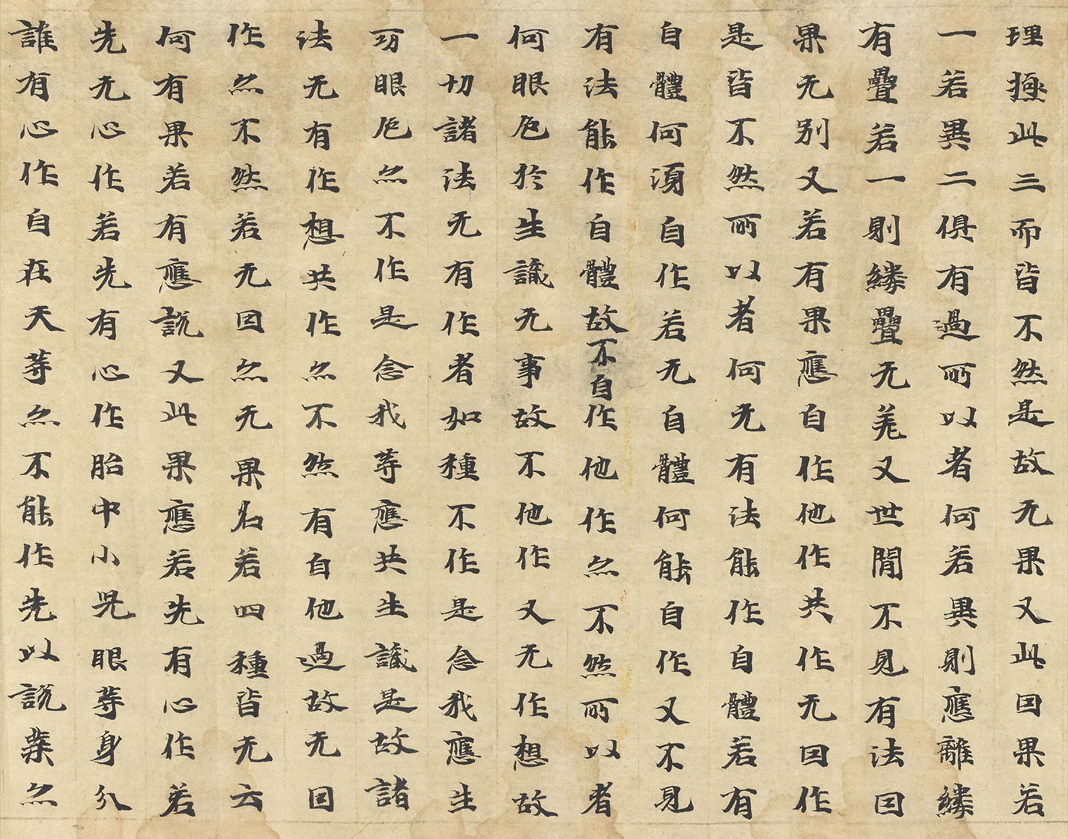 理極此三而皆不然是故无果又此因果若
一若異二俱有過所以者何若異則應離縷
有疊若一則縷疊无差又世間不見有法因
果无別又若有果應自作他作共作无因作
是皆不然所以者何无有法能作自體若有
自體何須自作若无自體何能自作又不見
有法能作自體故不自作他作亦不然所以者
何眼色於生識无事故不他作又无作想故
一切諸法无有作者如種不作是念我應生
牙眼色亦不作是念我等應共生識是故諸
法无有作想共作亦不然有自他過故无因
作亦不然若无因亦无果名若四種皆无云
何有果若有應說又此果應若先有心作若
先无心作若先有心作胎中小兒眼等身分
誰有心作自在天等亦不能作先以說業亦